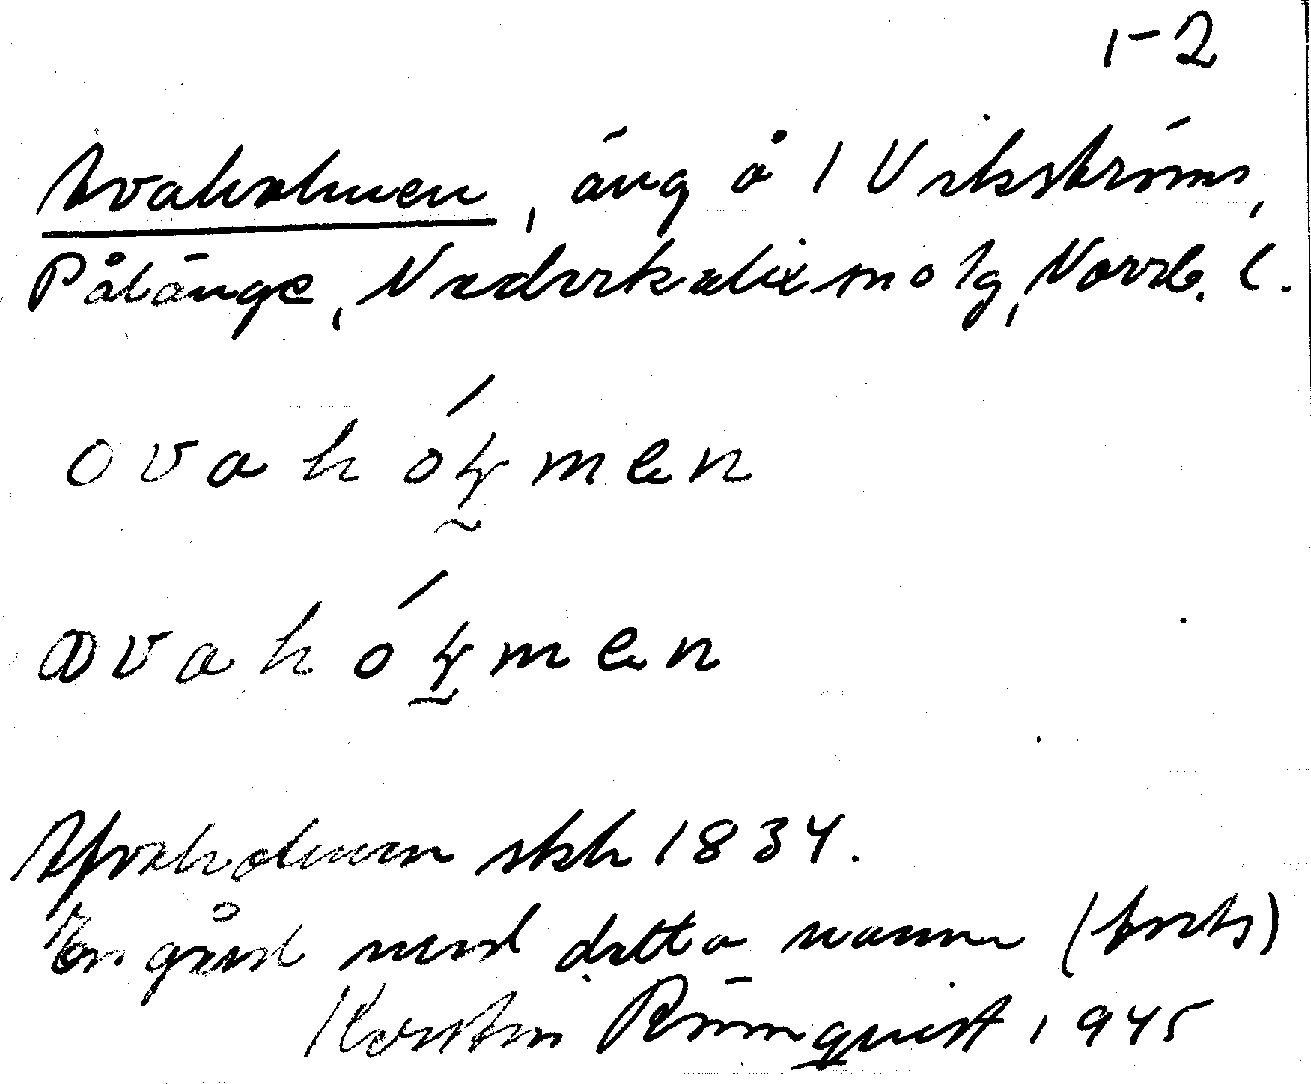 1-2
Ovaholmen, äng å 1 Vikströms,
Pålänge, Nederkalix sn o tg, Norrb. l.
ovahól̥men
ovahól̥men
Ofvaholmen skh 1834.
En gård med detta namn (forts)
Karstin Rönnquist 1945